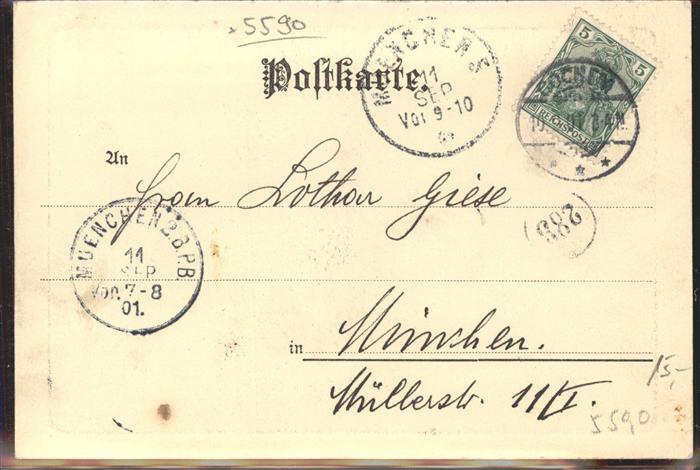 5590
Postkarte.
MUENCHEN 5
11
SEP
Vor 9-10
5 5
REICHSPOST
COCHEM
An
Herrn Lothar Giese
288
MUENCHEN 2.B.P.B.
11
SEP
Vor. 7-8
01.
in München.
Müllerstr. 11/I.
15,-
5590